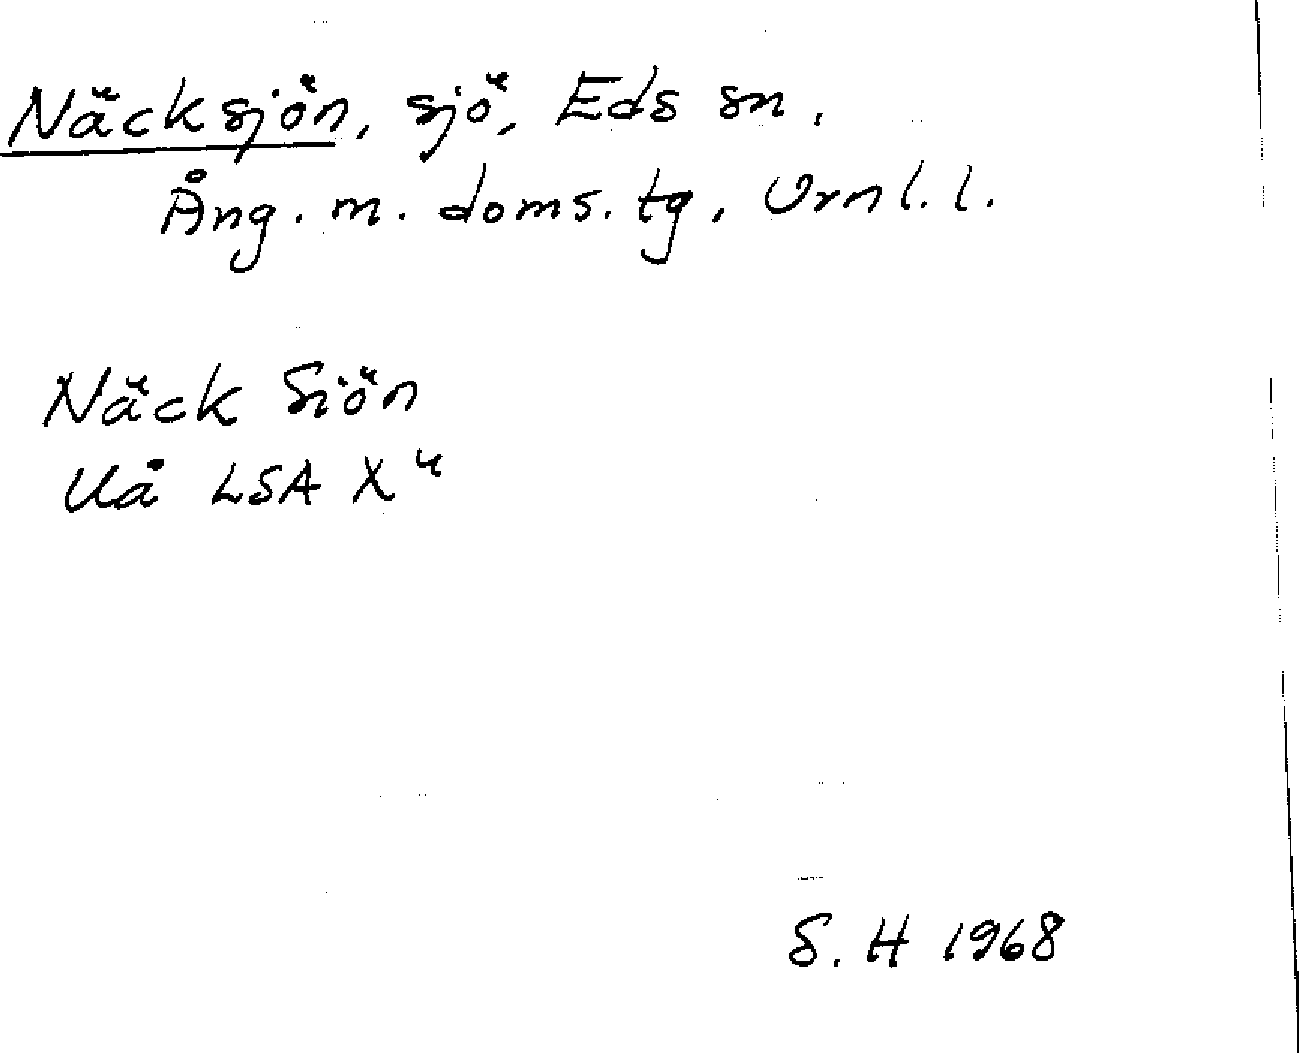 Näcksjön, sjö, Eds sn.
Ång. m. doms. tg, Vrnl. l.
Näck Siön
Uå LSA X 4
S. H 1968